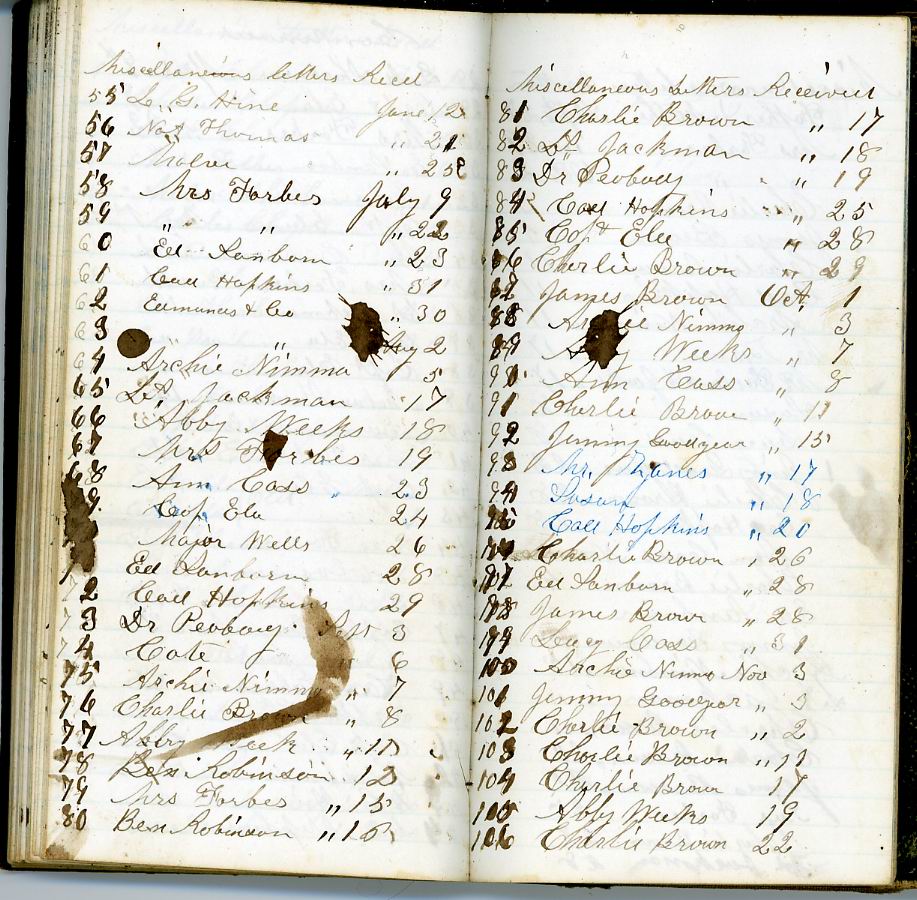 Miscellaneous Letters Recd
55 L. G. Hine June 12
56 Nat Thomas " 21
57 " 25
58 Mrs Forbes July 9
59 " " " 22
60 Ed Sanborn " 23
61 Cad Hopkins " 31
62 Edmunds & Co " 30
63 " Aug 2
64 Archie Nimmo 5
65 Lt. Jackman 17
66 Abby Weeks 18
67 Mrs Forbes 19
68 Ann Cass " 23
9 Cop Ela 24
Major Wells 26
Ed Sanborn 28
72 Cad Hopkins 29
73 Dr Peabody Sept 3
74 Cate " 6
75 Archie Nimmo " 7
76 Charlie Brown " 8
77 Abby Week " 11
78 Ben Robinson 12
79 Mrs Forbes " 15
80 Ben Robinson " 16
Miscellaneous Letters Received
81 Charlie Brown " 17
82 Lt Jackman " 18
83 Dr Peobody " 19
84 Cad Hopkins " 25
85 Cop Ela " 28
86 Charlie Brown " 29
87 James Brown Oct 1
88 Archie Nimmo " 3
89 Abby Weeks " 7
90 Ann Cass " 8
91 Charlie Brown " 11
92 Jimmy Goodyear " 15
93 Mr. " 17
94 Susan " 18
Cad Hopkins " 20
Charlie Brown " 26
Ed Sanburn " 28
98 James Brown " 28
99 Lucy Cass " 31
100 Archie Nimmo Nov 3
101 Jimmy Goodyear " 3
102 Charlie Brown " 2
103 Charlie Brown " 11
104 Charlie Brown 17
105 Abby Weeks 19
106 Charlie Brown 22